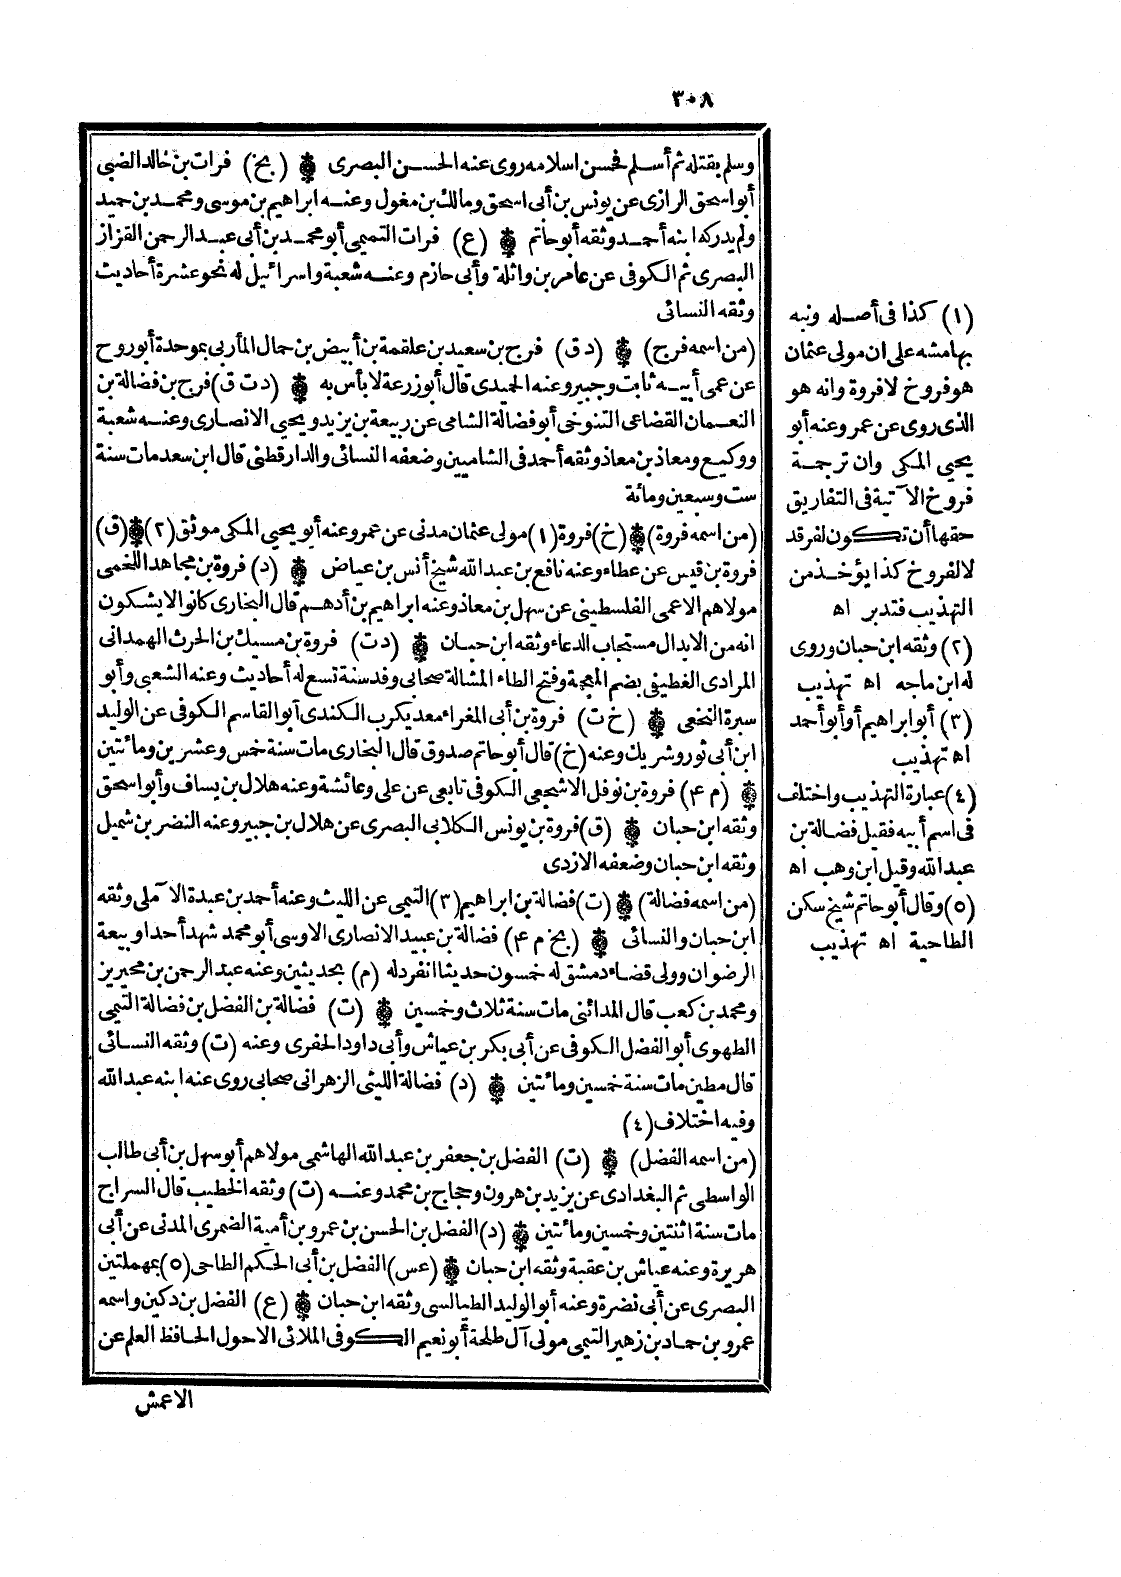 ٣٠٨
وسلم بقتله ثم أسلم فحسن اسلامه روى عنه الحسن البصرى ۞ (بخ) فرات بن خالد الضبى
أبو اسحق الرازى عن يونس بن أبى اسحق ومالك بن مغول وعنه ابراهيم بن موسى ومحمد بن حميد
ولم يدركه ابنه أحمد وثقه أبو حاتم ۞ (ع) فرات التميمى أبو محمد بن أبى عبد الرحمن القزاز
البصرى ثم الكوفى عن عامر بن واثلة وأبى حازم وعنه شعبة واسرائيل له نحو عشرة أحاديث
وثقه النسائى
(من اسمه فرج) ۞ (د ق) فرج بن سعيد بن علقمة بن أبيض بن حمال المأربى بموحدة أبو روح
عن عمى أبيه ثابت وجبير وعنه الحميدى قال أبو زرعة لا بأس به ۞ (د ت ق) فرج بن فضالة بن
النعمان القضاعى التنوخى أبو فضالة الشامى عن ربيعة بن يزيد ويحيى الانصارى وعنه شعبة
ووكيع ومعاذ بن معاذ وثقه أحمد فى الشاميين وضعفه النسائى والدارقطنى قال ابن سعد مات سنة
ست وسبعين ومائة
(من اسمه فروة) ۞ (خ) فروة (١) مولى عثمان مدنى عن عمر وعنه أبو يحيى المكى موثق (٢) ۞ (ق)
فروة بن قيس عن عطاء وعنه نافع بن عبد الله شيخ أنس بن عياض ۞ (د) فروة بن مجاهد اللخمى
مولاهم الاعمى الفلسطينى عن سهل بن معاذ وعنه ابراهيم بن أدهم قال البخارى كانوا لا يشكون
انه من الابدال مستجاب الدعاء وثقه ابن حبان ۞ (د ت) فروة بن مسيك بن الحرث الهمدانى
المرادى الغطيفى بضم المعجمة وفتح الطاء المشالة صحابى وفد سنة تسع له أحاديث وعنه الشعبى وأبو
سبرة النخعى ۞ (خ ت) فروة بن أبى المغراء معديكرب الكندى أبو القاسم الكوفى عن الوليد
ابن أبى ثور وشريك وعنه (خ) قال أبو حاتم صدوق قال البخارى مات سنة خمس وعشرين ومائتين
۞ (م ٤) فروة بن نوفل الاشجعى الكوفى تابعى عن على وعائشة وعنه هلال بن يساف وأبو اسحق
وثقه ابن حبان ۞ (ق) فروة بن يونس الكلابى البصرى عن هلال بن جبير وعنه النضر بن شميل
وثقه ابن حبان وضعفه الازدى
(من اسمه فضالة) ۞ (ت) فضالة بن ابراهيم (٣) التيمى عن الليث وعنه أحمد بن عبدة الآملى وثقه
ابن حبان والنسائى ۞ (بخ م ٤) فضالة بن عبيد الانصارى الاوسى أبو محمد شهد أحدا وبيعة
الرضوان وولى قضاء دمشق له خمسون حديثا انفرد له (م) بحديثين وعنه عبد الرحمن بن محيريز
ومحمد بن كعب قال المدائنى مات سنة ثلاث وخمسين ۞ (ت) فضالة بن الفضل بن فضالة التيمى
الطهوى أبو الفضل الكوفى عن أبى بكر بن عياش وأبى داود الحفرى وعنه (ت) وثقه النسائى
قال مطين مات سنة خمسين ومائتين ۞ (د) فضالة الليثى الزهرانى صحابى روى عنه ابنه عبد الله
وفيه اختلاف (٤)
(من اسمه الفضل) ۞ (ت) الفضل بن جعفر بن عبد الله الهاشمى مولاهم أبو سهل بن أبى طالب
الواسطى ثم البغدادى عن يزيد بن هرون وحجاج بن محمد وعنه (ت) وثقه الخطيب قال السراج
مات سنة اثنتين وخمسين ومائتين ۞ (د) الفضل بن الحسن بن عمرو بن أمية الضمرى المدنى عن أبى
هريرة وعنه عياش بن عقبة وثقه ابن حبان ۞ (عس) الفضل بن أبى الحكم الطاحى (٥) بمهملتين
البصرى عن أبى نضرة وعنه أبو الوليد الطيالسى وثقه ابن حبان ۞ (ع) الفضل بن دكين واسمه
عمرو بن حماد بن زهير التيمى مولى آل طلحة أبو نعيم الكوفى الملائى الاحول الحافظ العلم عن
الاعمش
(١) كذا فى أصله ونبه
بهامشه على ان مولى عثمان
هو فروخ لا فروة وانه هو
الذى روى عن عمر وعنه أبو
يحيى المكى وان ترجمة
فروخ الآتية فى التفاريق
حقها أن تكون لفرقد
لا لفروخ كذا يؤخذ من
التهذيب فتدبر اه
(٢) وثقه ابن حبان وروى
له ابن ماجه اه تهذيب
(٣) أبو ابراهيم أو أبو أحمد
اه تهذيب
(٤) عبارة التهذيب واختلف
فى اسم أبيه فقيل فضالة بن
عبد الله وقيل ابن وهب اه
(٥) وقال أبو حاتم شيخ سكن
الطاحية اه تهذيب